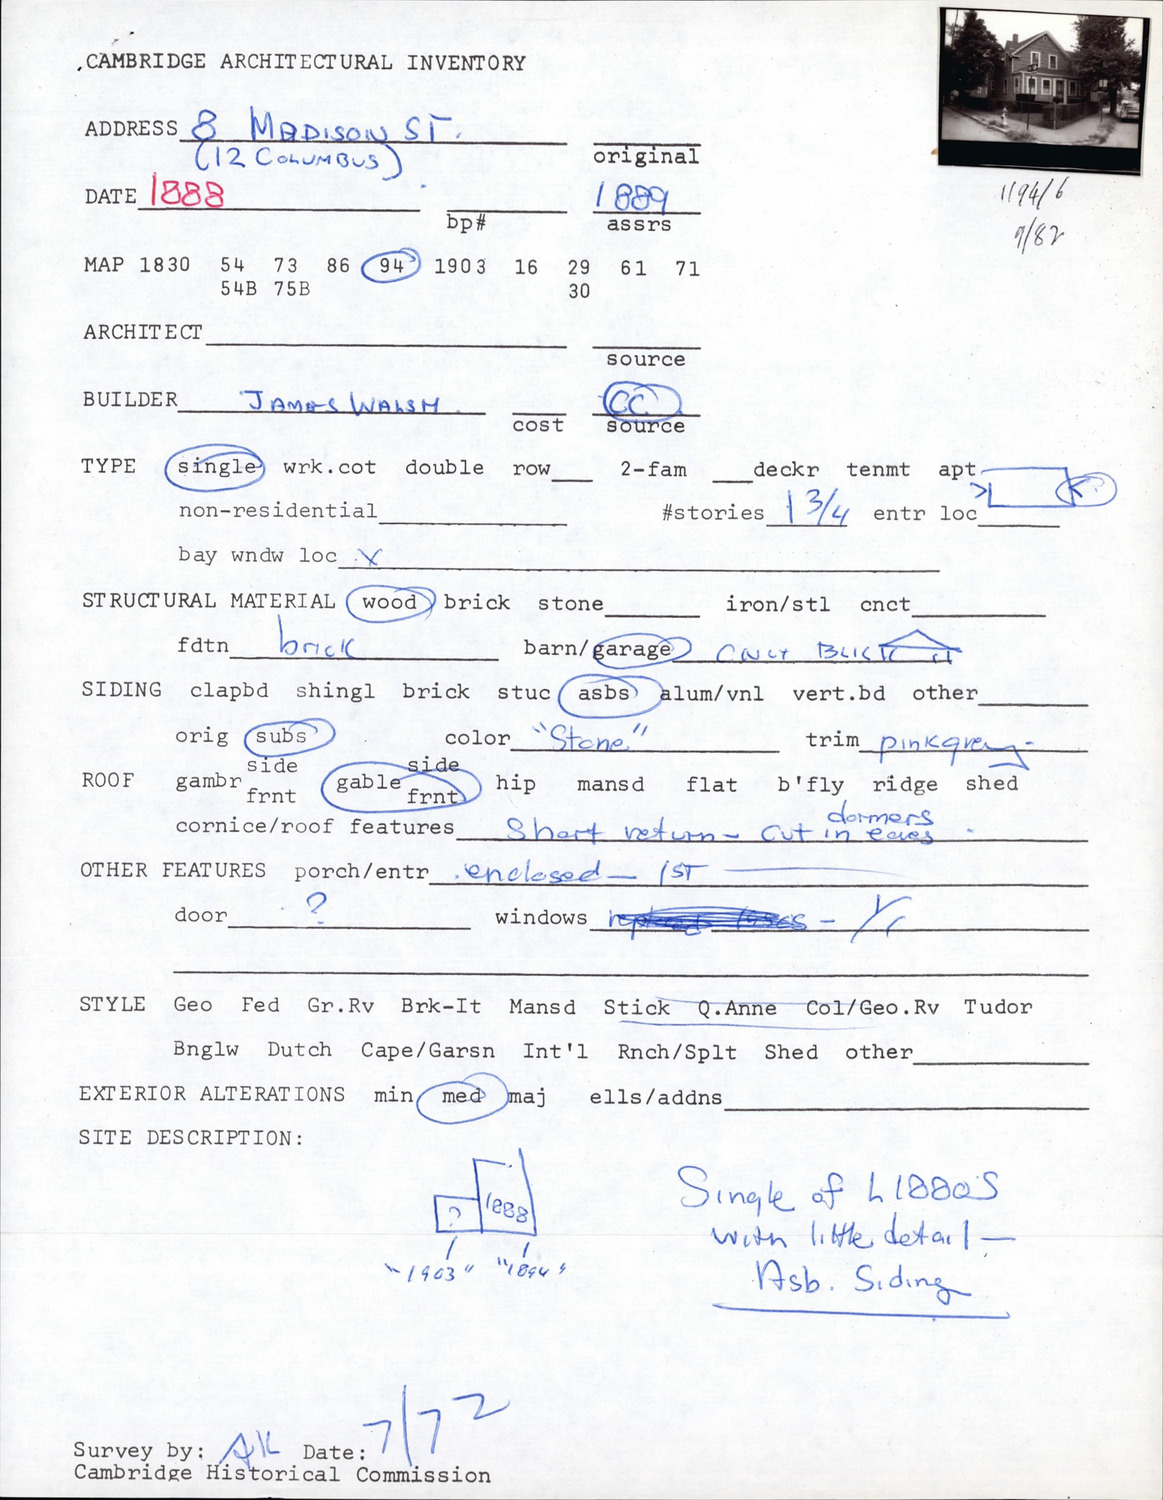 CAMBRIDGE ARCHITECTURAL INVENTORY
ADDRESS 8 MADISON ST.
(12 COLUMBUS) original
DATE 1888 1889
bp# assrs
MAP 1830 54 73 86 94 1903 16 29 61 71
54B 75B 30
ARCHITECT
source
BUILDER JAMES WALSH CC
cost source
TYPE single wrk.cot double row 2-fam deckr tenmt apt
non-residential #stories 1 3/4 entr loc
bay wndw loc X
STRUCTURAL MATERIAL wood brick stone iron/stl cnct
fdtn brick barn/garage CNCT BLK
SIDING clapbd shingl brick stuc asbs alum/vnl vert.bd other
orig subs color "Stone" trim pinkgrey
ROOF gambr side frnt gable side frnt hip mansd flat b'fly ridge shed
cornice/roof features Short return - cut in eaves dormers
OTHER FEATURES porch/entr enclosed - 1ST
door ? windows - 1/1
STYLE Geo Fed Gr.Rv Brk-It Mansd Stick Q.Anne Col/Geo.Rv Tudor
Bnglw Dutch Cape/Garsn Int'l Rnch/Splt Shed other
EXTERIOR ALTERATIONS min med maj ells/addns
SITE DESCRIPTION:
? 1888
"1903" "1894"
Single of L1880S
with little detail —
Asb. Siding
Survey by: AK Date: 7/72
Cambridge Historical Commission
1194/6
9/82